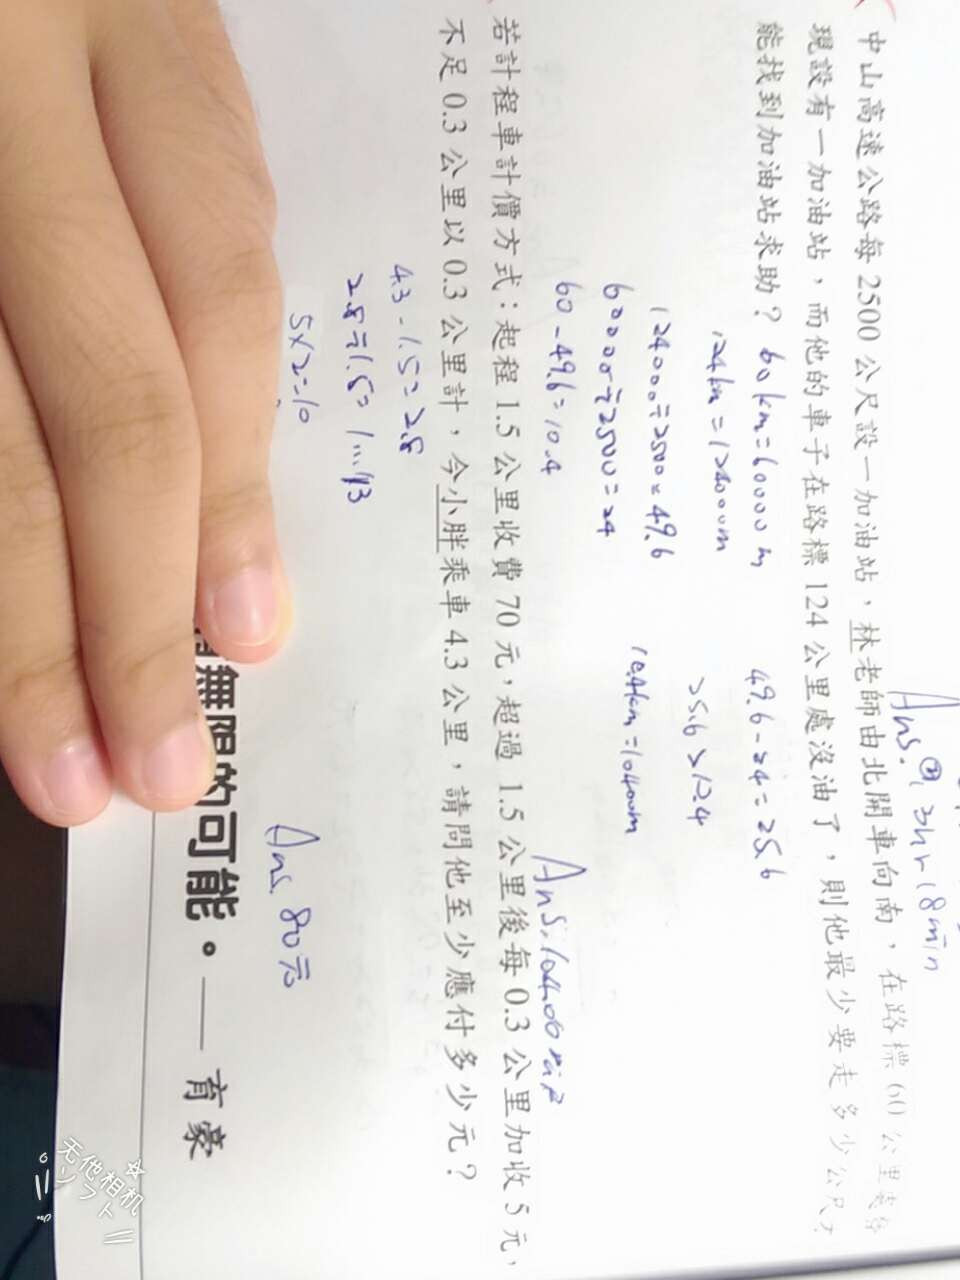 Ans. ②, 3hr 18min
中山高速公路每 2500 公尺設一加油站，林老師由北開車向南，在路標 60 公里
現設有一加油站，而他的車子在路標 124 公里處沒油了，則他最少要走多少公尺才
能找到加油站求助？ 60km=60000m 49.6-24=25.6
124km=124000m 25.6>12.4
124000÷2500=49.6
60000÷2500=24 10.4km=10400m
60-49.6=10.4 Ans:10400
若計程車計價方式：起程 1.5 公里收費 70 元，超過 1.5 公里後每 0.3 公里加收 5 元，
不足 0.3 公里以 0.3 公里計，今小胖乘車 4.3 公里，請問他至少應付多少元？
4.3-1.5=2.8
2.8÷1.5=1...1.3
5×2=10 Ans. 80元
無限的可能。——育豪
无他相机